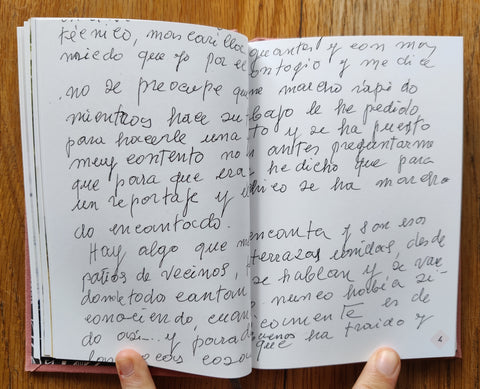 técnico, mascarilla guantes y con mas
miedo que yo por el contagio y me dice
no se preocupe que me marcho rápido
mientras hace su bajo le he pedido
para hacerle una to y se ha puesto
muy contento no antes preguntarme
que para que era he dicho que para
un reportaje y nico se ha marcha
do encantado.
Hay algo que me encanta y son esos
patios de vecinos, terrazas unidas, desde
donde todos cantan se hablan y se van
conociendo, cuan nunca había si-
do así... y, parado icamente es de
las pocas cosas buenas que ha traido y
4